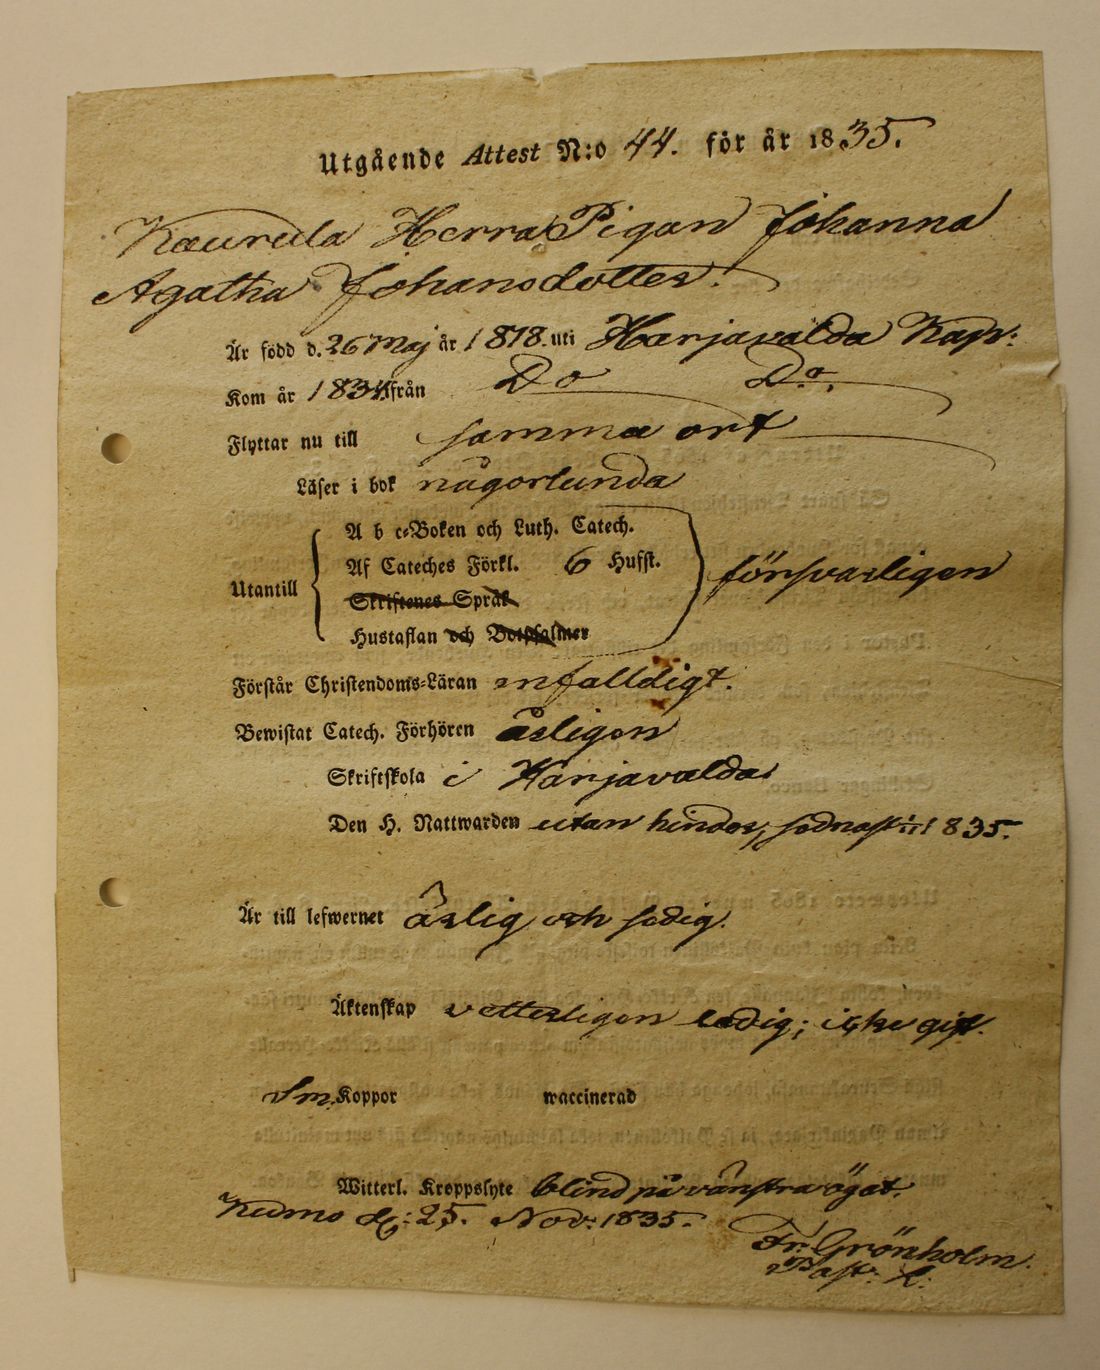 Utgående Attest N:o 44. för år 1835.
Kaurula Herra Pigan Johanna
Agatha Johansdotter.
Är född d. 26 Maj år 1818. uti Harjavalda Kap:
Kom år 1834. från Do Do.
Flyttar nu till samma ort
Läser i bok någorlunda
A b c-Boken och Luth. Catech.
Af Cateches Förkl. 6 Hufst.
Utantill försvarligen
Skriftenes Språk
Hustaflan och Botpsalmer
Förstår Christendoms-Läran enfalldigt.
Bewistat Catech. Förhören årligen
Skriftskola i Harjavalda
Den H. Nattwarden utan hinder, sednast 1/11 1835.
Är till lefwernet ärlig och sedig.
Äktenskap vetterligen ledig; icke gift.
Sm. Koppor waccinerad
Witterl. Kroppslyte blind på vänstra ögat.
Kumo d: 25. Nov: 1835.
Fr. Grönholm.
Past: